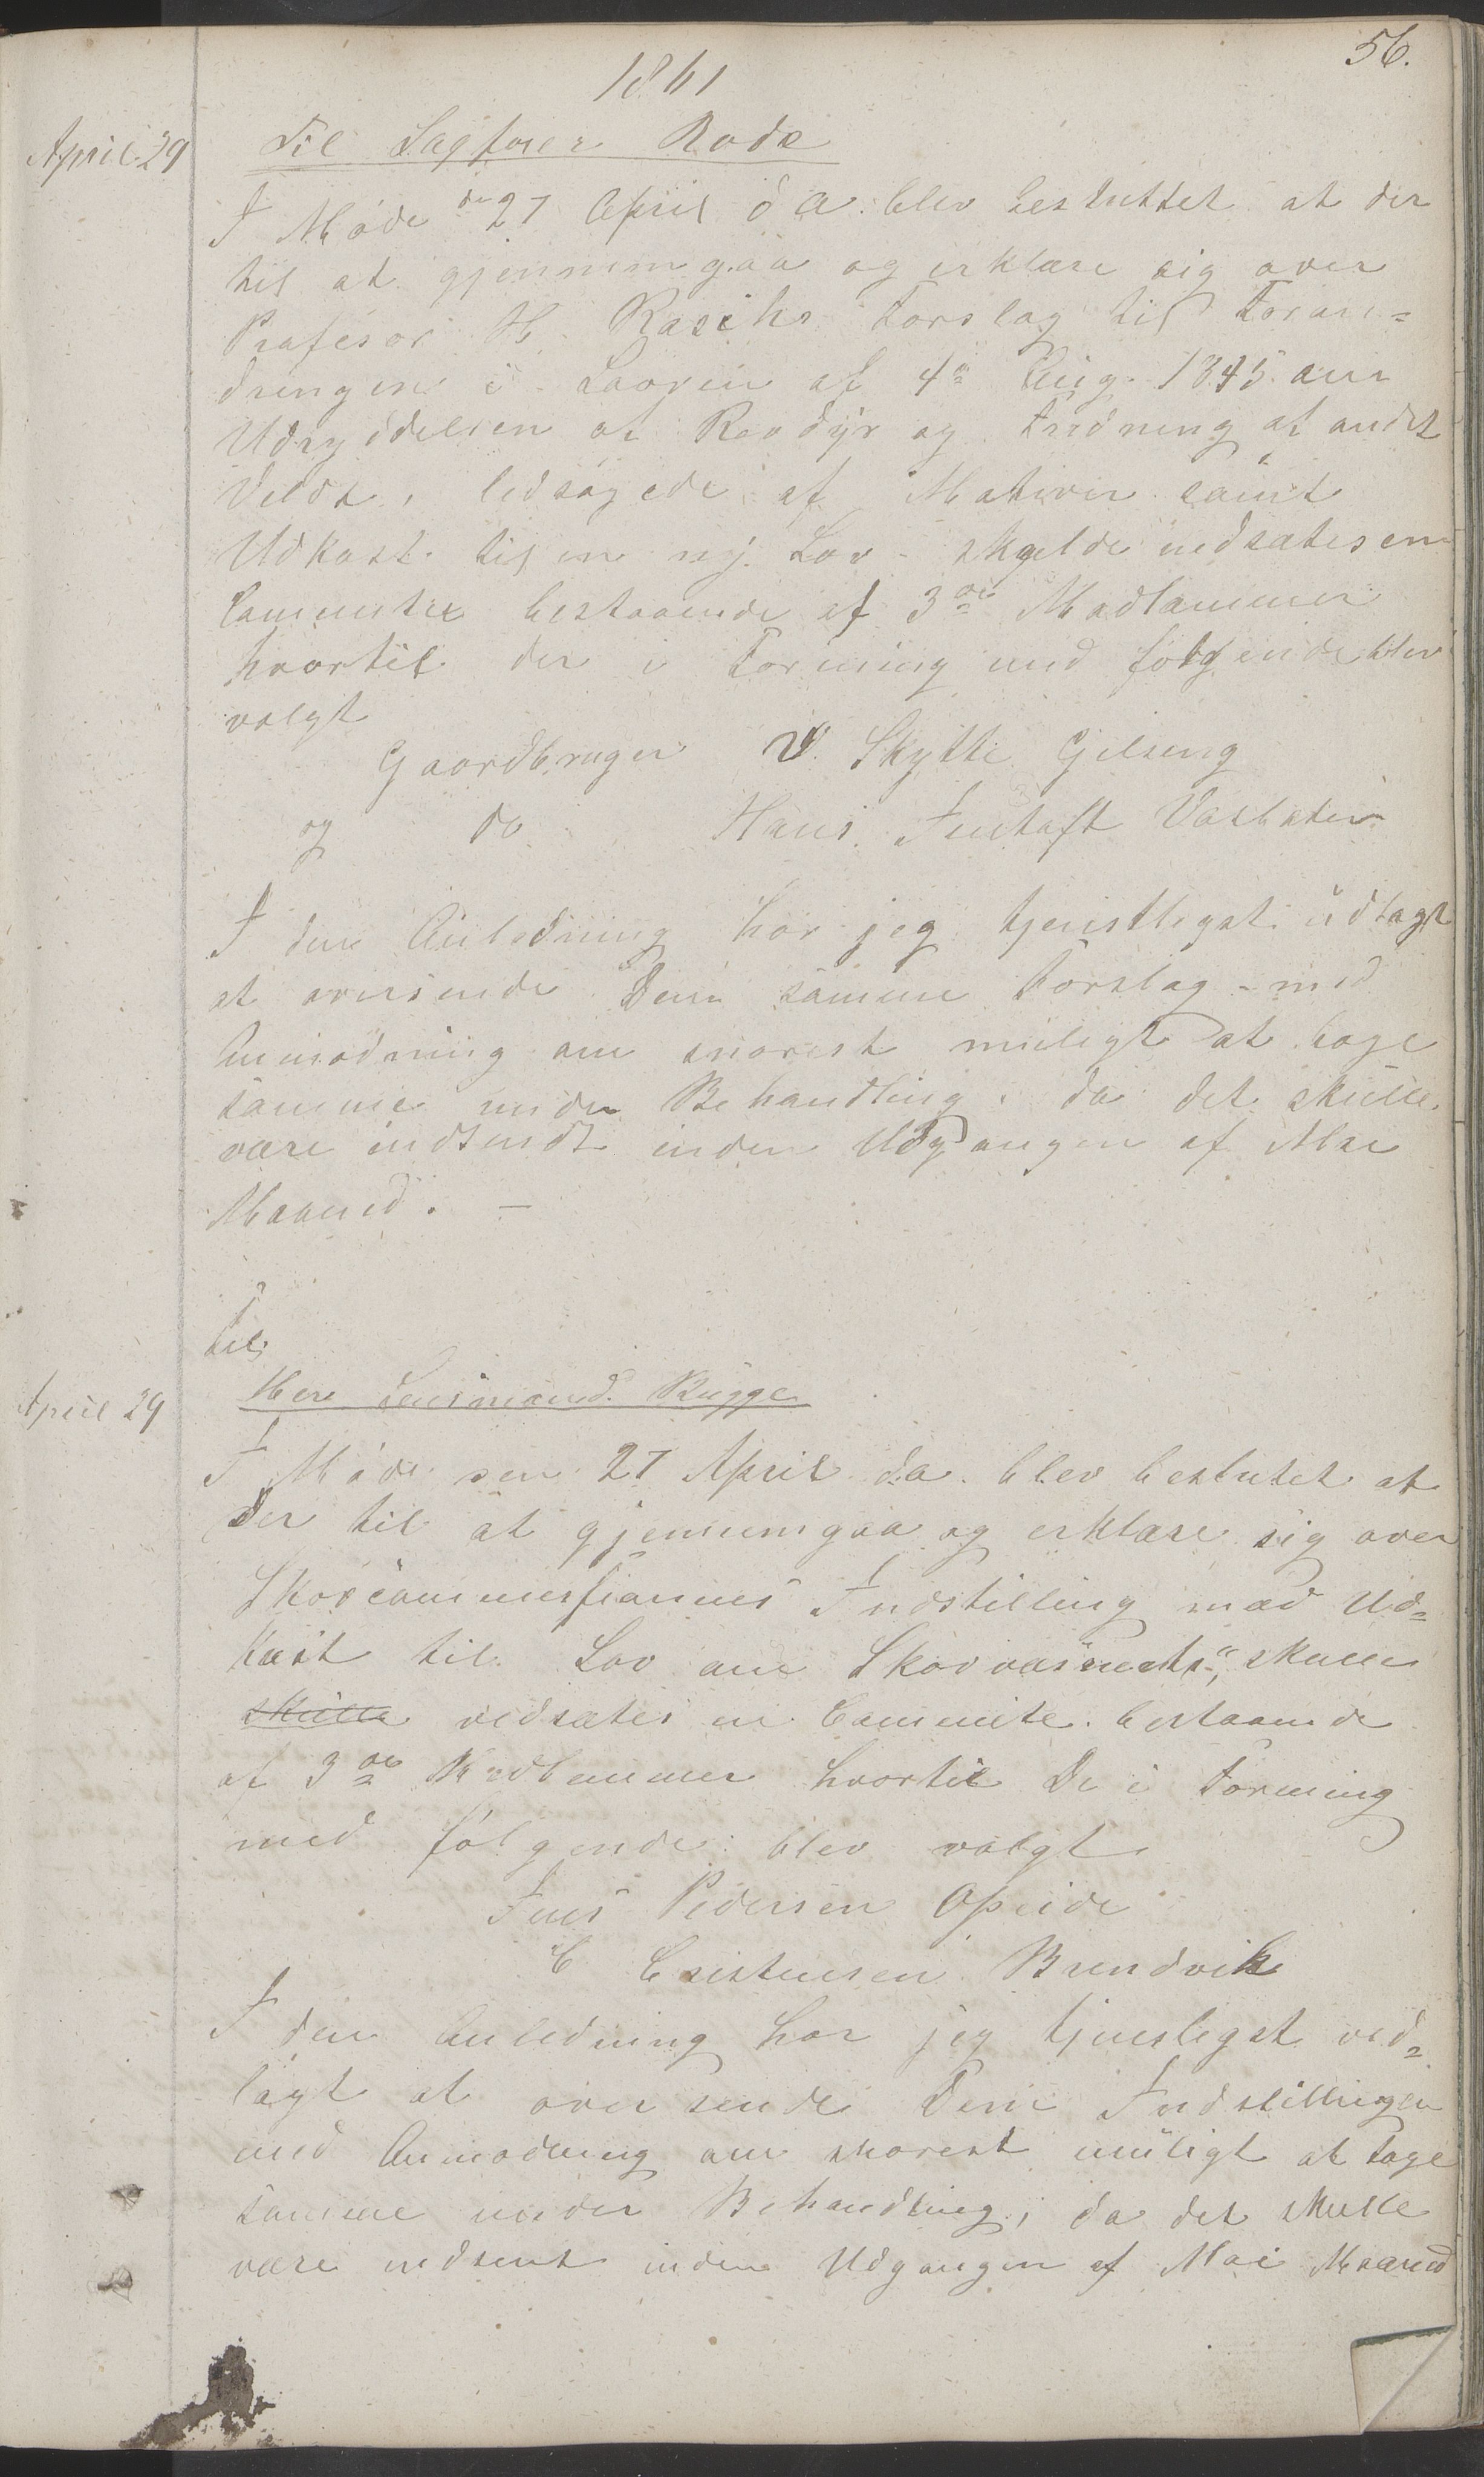 56.
1861
April 29
Til Sagfører Rode
I Møde den 27 April d A. blev besluttet at der
til at gjennemgaa og erklære sig over
Profesor H. Raschs Forslag til Foran=
dringer i Loven af 4de Aug. 1845 om
Udryddelsen af Rovdyr og Fredning af andet
Vildt, ledsagede af Motiver samt
Udkast til en ny Lov - skulde nedsættes en
Committee bestaaende af 3de Medlemmer
hvortil der i Forening med følgende blev
valgt
Gaardbruger V. Skytte
og do Hans
I den Anledning har jeg tjenstligst
at oversende Dem samme Forslag - med
Anmodning om snarest muligt at tage
samme under Behandling, da det skulle
være indsendt inden Udgangen af Mai
Maaned. -
Til
April 29
Herr Lensmand Rygge
I Møde den 27 April d.a. blev besluttet at
der til at gjennemgaa og erklære sig over
Skovcommissionens Indstilling med Ud=
kast til Lov om Skovvæsenet", skulle
skulle nedsættes en Committe bestaaende
af 3de Medlemmer hvortil De i Forening
med følgende blev valgt
Jens Pedersen Opeide
C Cristensen Brendvik
I den Anledning har jeg tjenstligst ved=
lagt at oversende Dem Indstillingen
med Anmodning om snarest muligt at tage
samme under Behandling, da det skulle
være indsent inden Udgangen af Mai Maaned